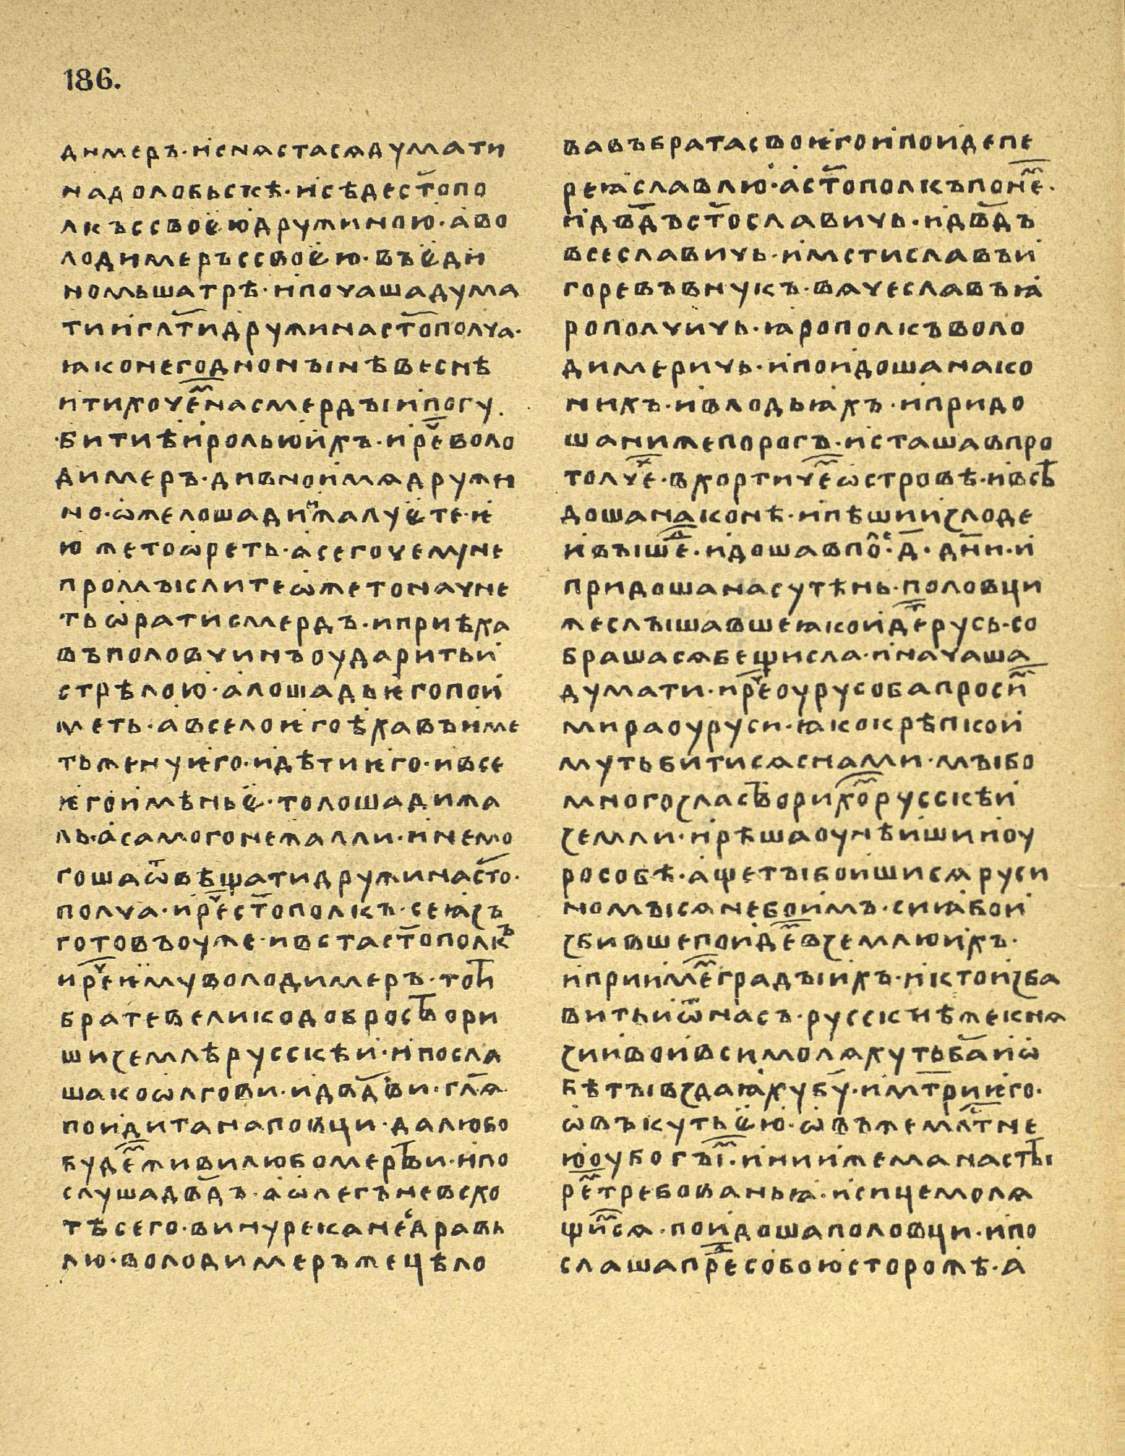 186.
димеръ· и снѧстасѧ думати
на долобьскѣ· и сѣде ст҃опо
лкъ с своѥю дружиною· а во
лодимеръ с своѥю· въ ѥди
номь шатрѣ· и почаша дума
ти и гл҃ти дружина ст҃ополча·
ꙗко не годно нынѣ веснѣ
ити хочеⷨ на смерды и погу
бити ѣ и ролью их· и реⷱ воло
димеръ· дивно имѧ дружи
но· ѡже лошадиⷩ жалуѥте· ѥ
ю же то ѡреть· а сего чему не
промыслите ѡже то начне
ть ѡрати смердъ· и приѣха
въ половчинъ оударить и
стрѣлою· а лошадь ѥго пои
меть· а в село ѥго ѣхавъ име
ть жену ѥго· и дѣти ѥго· и все
ѥго имѣньѥ· то лошади жа
ль· а самого не жаль ли· и не мо
гоша ѿвѣщати дружина ст҃о·
полча· и реⷱ ст҃ополкъ· се ꙗзъ
готовъ оуже· и вста ст҃ополкъ
и реⷱ ѥму володимеръ· то ти
брате велико добро створи
ши земле русскѣи· и посла
ша ко ѡлгови· и дв҃дви· гл҃ѧ
поидита на половци· да любо
будеⷨ живи любо мертви· и по
слуша дв҃дъ· а ѡлегъ не всхо
тѣ сего· вину река неⷥдравь
лю· володимеръ же цѣло
вавъ брата своѥго и поиде пе
реꙗславлю· а ст҃ополкъ по неⷨ·
и дв҃дъ ст҃ославичь· и дв҃дъ
всеславичь· и мстиславъ и
горевъ внукъ· вѧчеславъ ꙗ
рополчичь· ꙗрополкъ воло
димеричь· и поидоша на ко
нихъ· и в лодьꙗхъ· и придо
ша ниже порогъ· и сташа в про
толчеⷯ· в хортичеⷨ ѡстровѣ· и всѣ
доша на конѣ· и пѣшии из лоде
и вышеⷣ· и доша в полеⷭ· д҃· дн҃и· и
придоша на сутѣнь· половци
же слышавше ꙗко идеⷮ русь· со
брашасѧ бещисла· и начаша
думати· и реⷱ оурусоба просиⷨ
мира оу руси· ꙗко крѣпко и
муть битисѧ с нами· мы бо
много зла створихоⷨ русскѣи
земли· и рѣша оунѣишии оу
рособѣ· аще ты боишисѧ руси
но мы сѧ не боимъ· сиꙗ бо и
збивше поидеⷨ в землю ихъ·
и приимеⷨ грады ихъ· и кто изба
вить и ѿ насъ· русскиѣ же кнѧ
зи и вои вси молѧхуть ба҃ и ѡ
бѣты вздаꙗху бу҃· и мт҃ри ѥго·
ѡвъ кутьѥю· ѡвъ же млⷭ҇тне
ю оубогыⷨ· инии же манастыⷬ҇
реⷨ требованьꙗ· и сице молѧ
щиⷨсѧ· поидоша половци· и по
слаша преⷣ собою сторожѣ· а